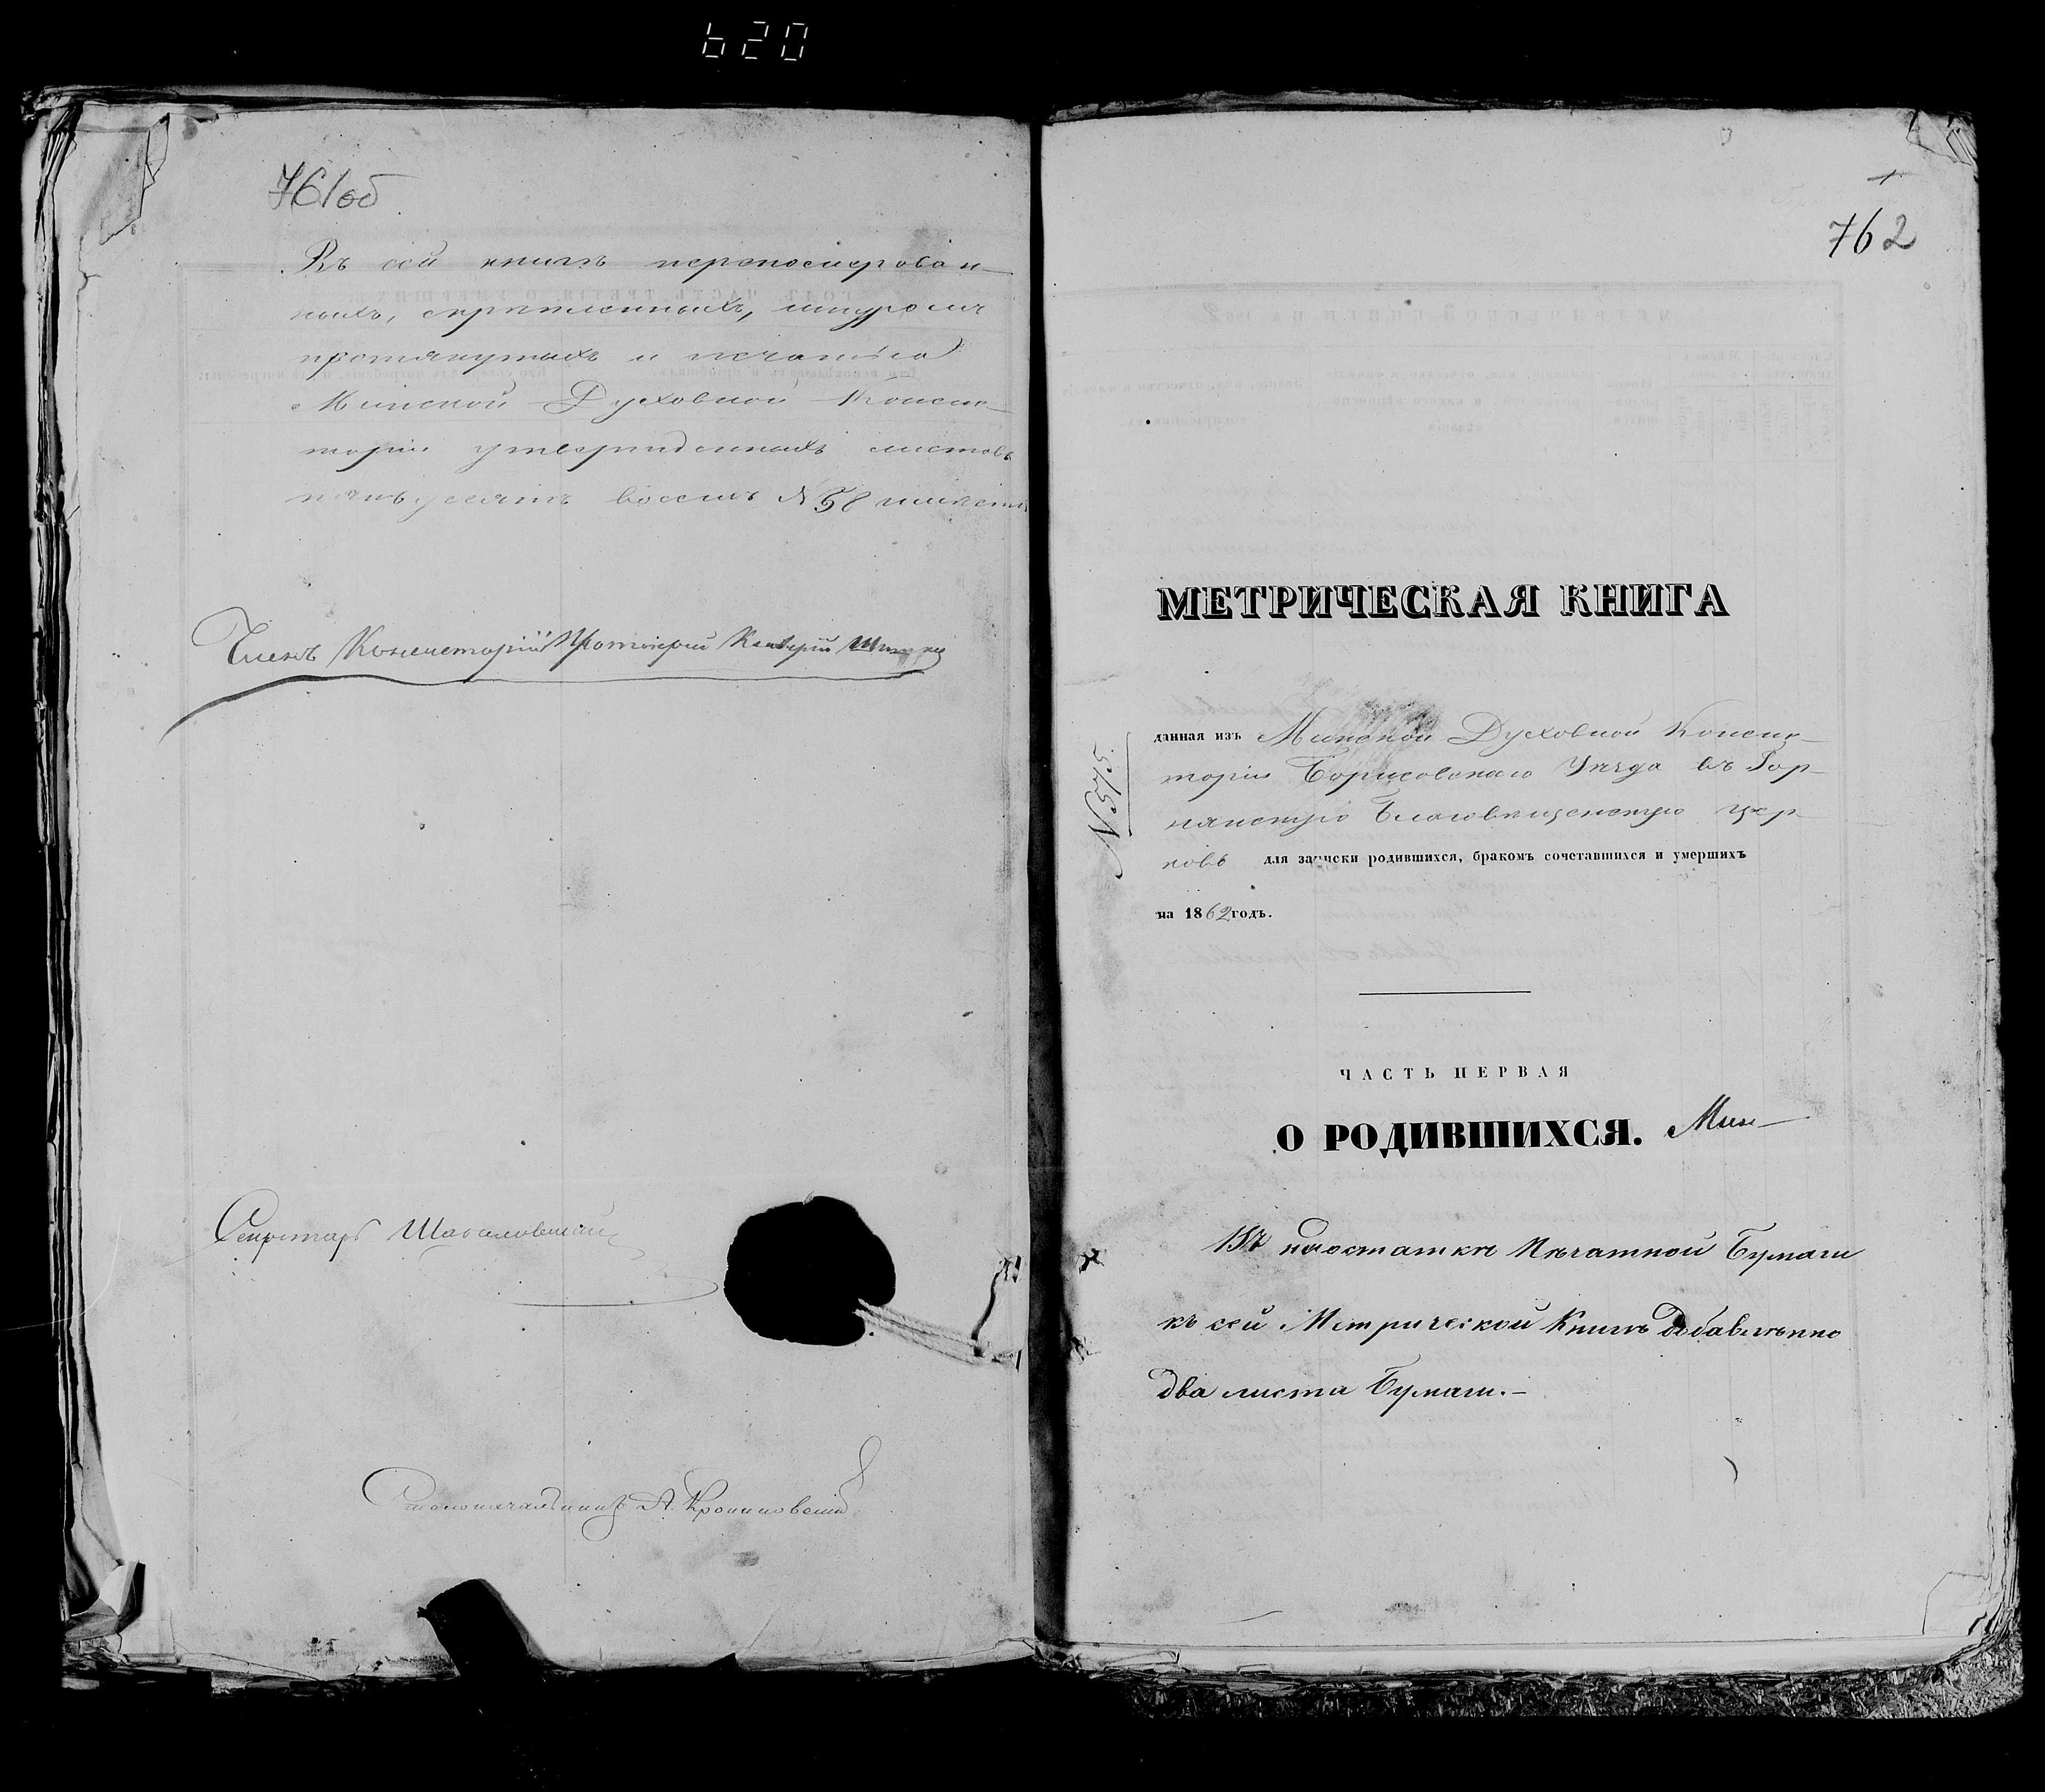 620
761об
Въ сей книгѣ перепомерован-
ныхъ, скрѣпленныхъ, шнуромъ
протянутыхъ и печатью
Минской Духовной Консис-
торіи утвержденныхъ листовъ
пятьдесятъ восемь № 58
Членъ Консисторіи Протоіерей
Секретарь
Столоначальникъ А.
1
762
МЕТРИЧЕСКАЯ КНИГА
данная изъ Минской Духовной Консис-
торіи Борисовскаго Уѣзда въ Гор-
нянскую Благовѣщенскую цер-
ковь для записки родившихся, бракомъ сочетавшихся и умершихъ
на 1862 годъ.
№ 515
ЧАСТЬ ПЕРВАЯ
О РОДИВШИХСЯ. Мин-
недостаткѣ Печатной Бумаги
къ сей Метрической Книгѣ добавлѣнно
два листа Бумаги.-